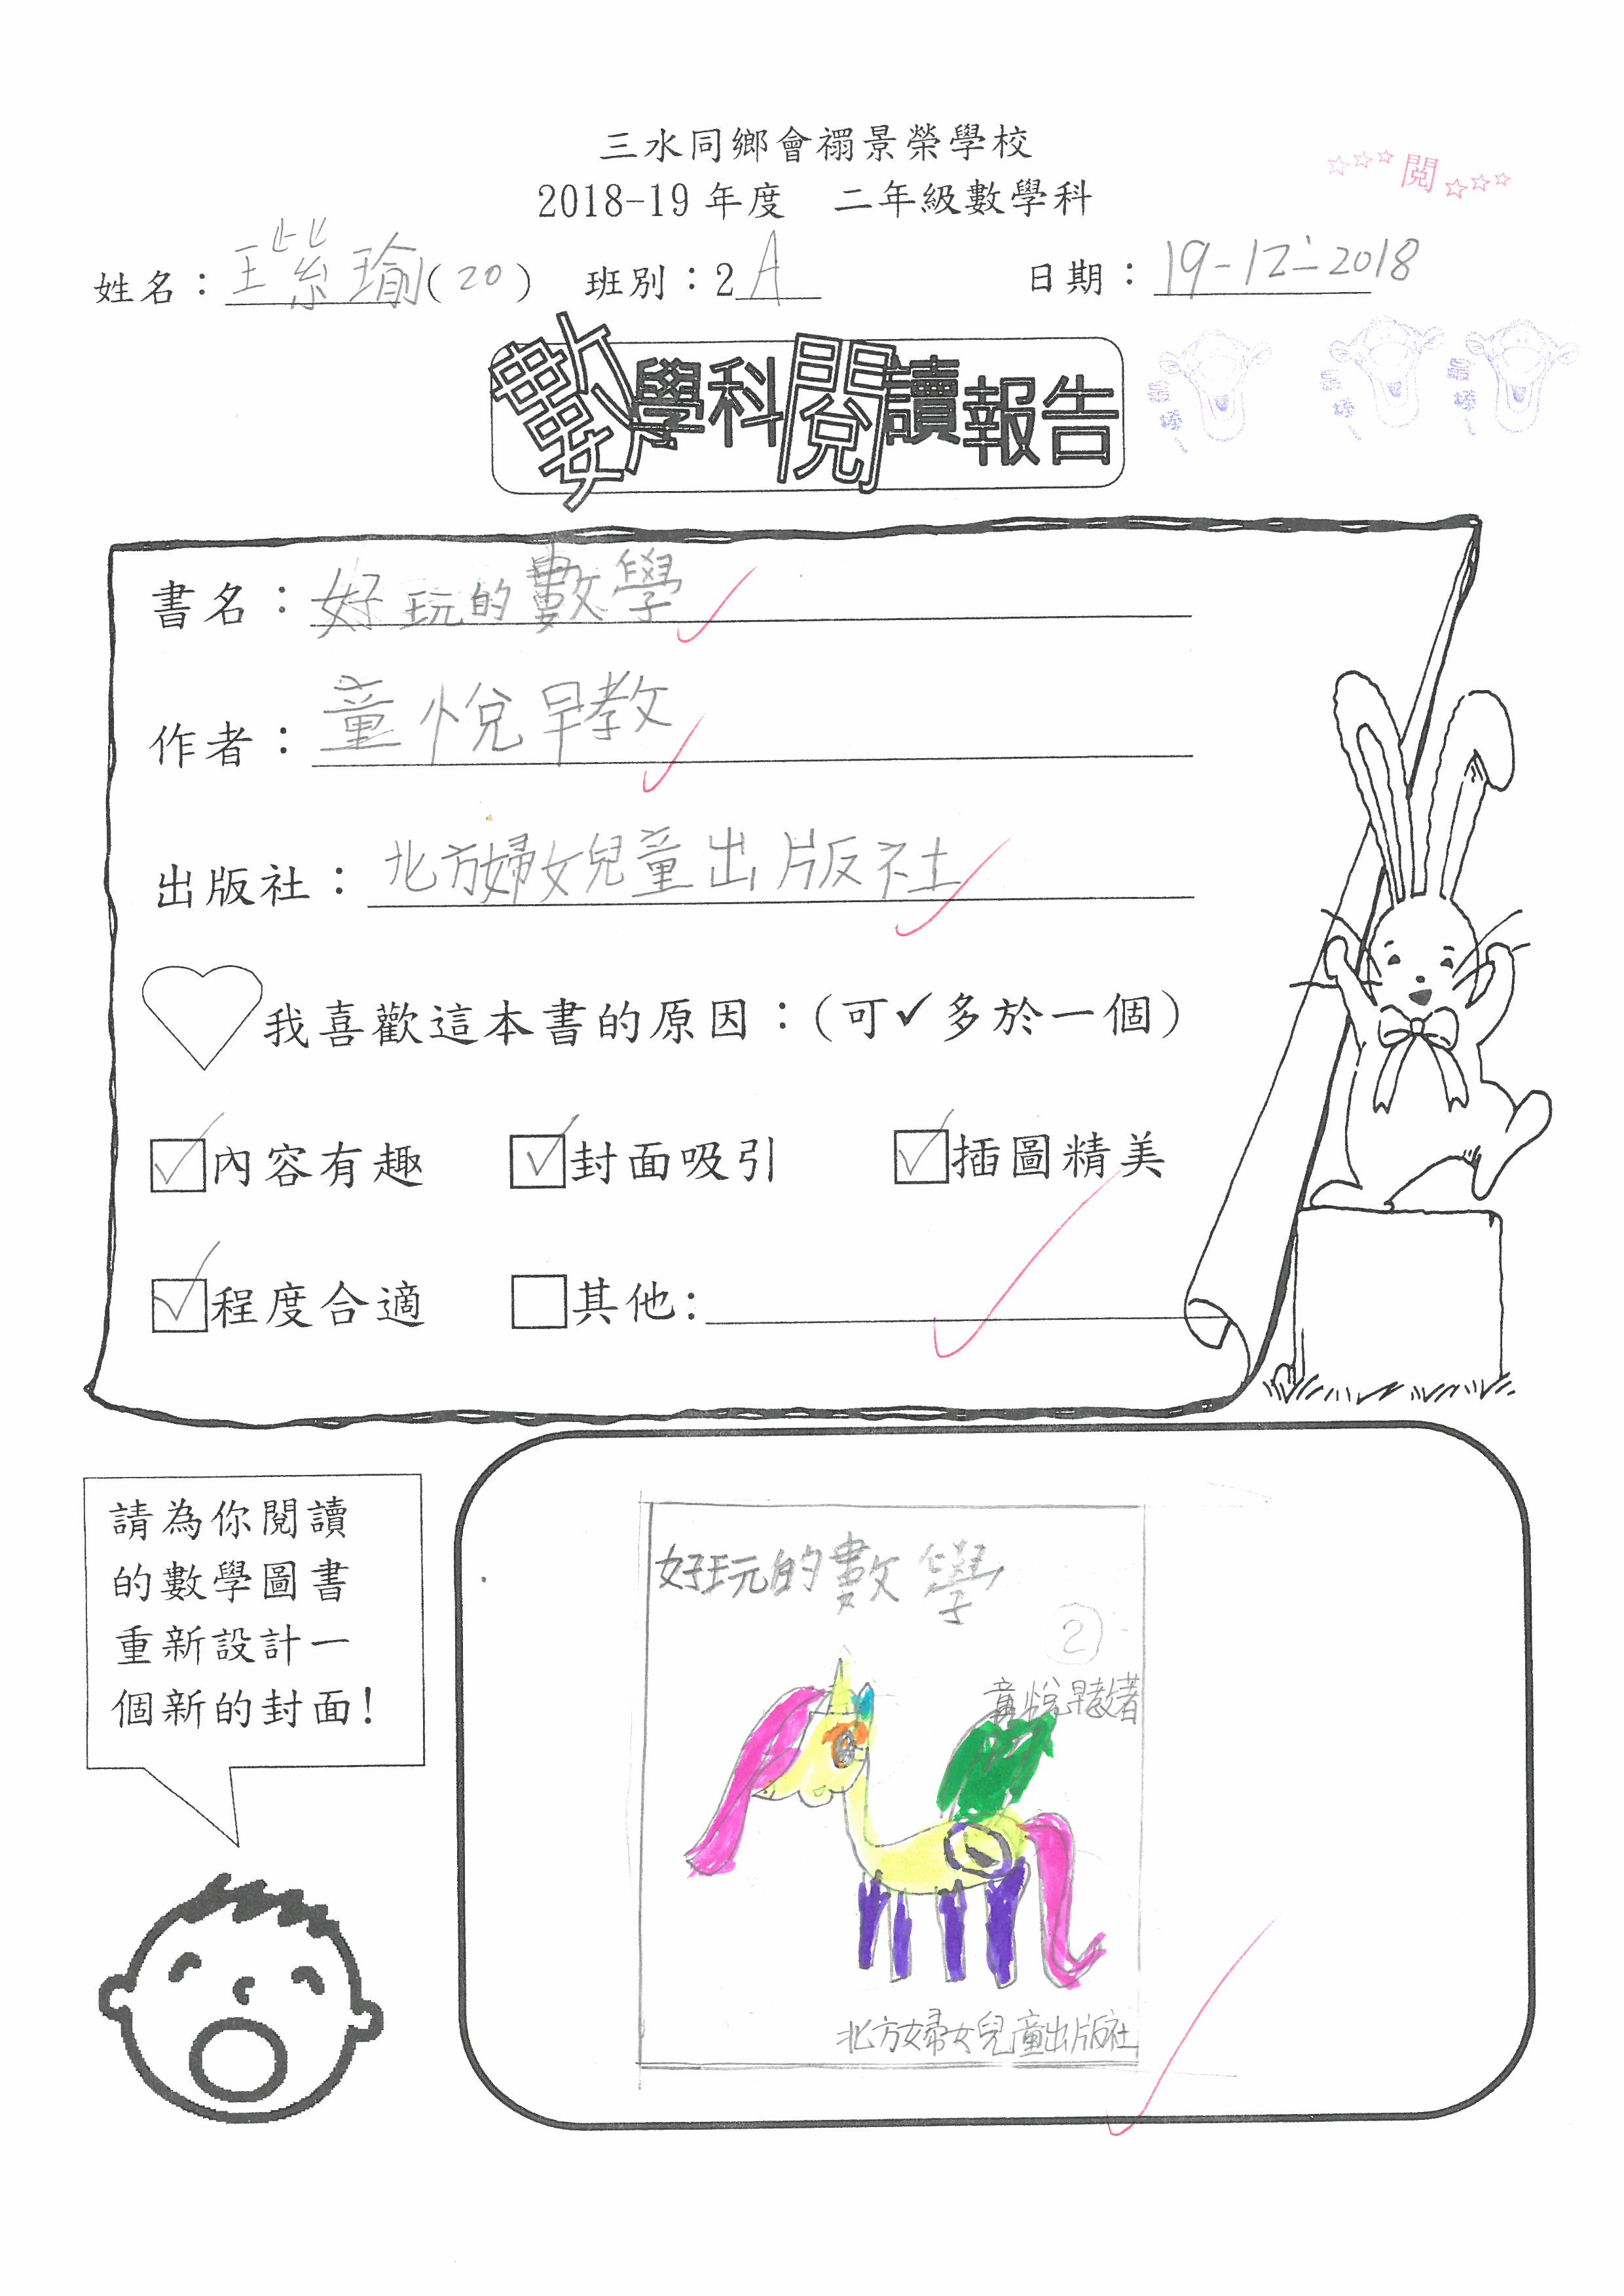 三水同鄉會禤景榮學校
☆☆☆閱☆☆☆
2018-19 年度 二年級數學科
姓名：王紫瑜(20) 班別：2A 日期：19-12-2018
數學科閱讀報告
書名：好玩的數學
作者：童悅早教
出版社：北方婦女兒童出版社
我喜歡這本書的原因：(可✓多於一個)
☑內容有趣 ☑封面吸引 ☑插圖精美
☑程度合適 □其他:
請為你閱讀
的數學圖書
重新設計一
個新的封面!
好玩的數學
2
童悅早教著
北方婦女兒童出版社